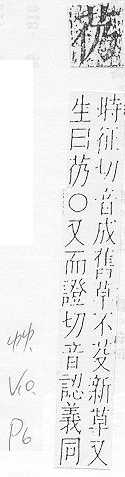 芿
時征切音成舊草不芟新草又
生曰芿○又而證切音認義同
艸
V.0.
P6